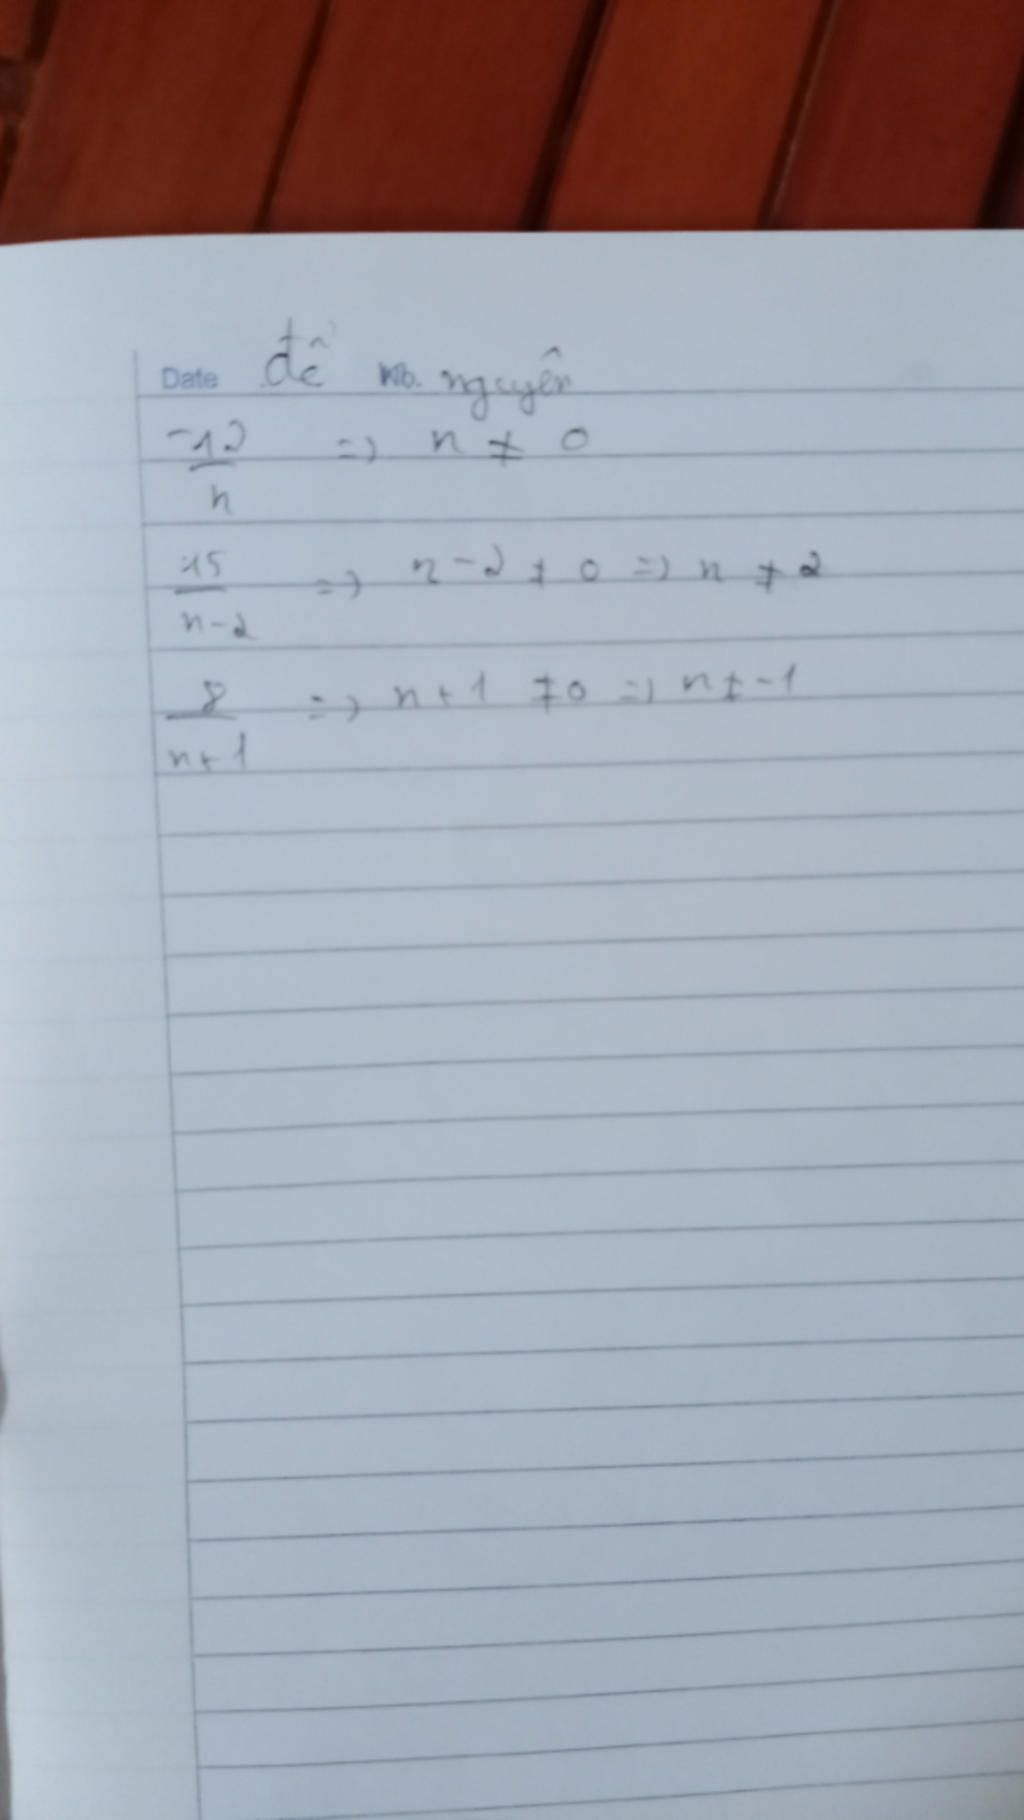 Date để No. nguyên
-12/n => n ≠ 0
15/n-2 => n-2 ≠ 0 => n ≠ 2
8/n+1 => n+1 ≠ 0 => n ≠ -1